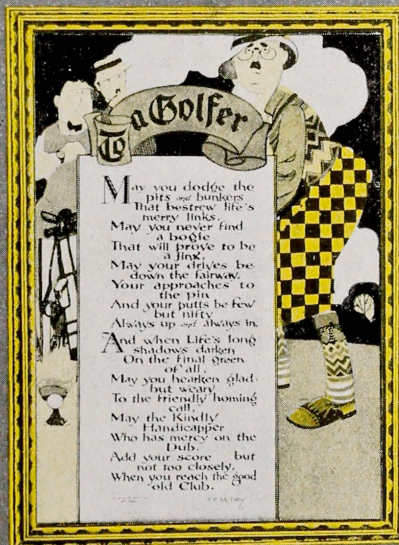 To a Golfer
May you dodge the
pits and bunkers
That bestrew life's
merry links.
May you never find
a bogie
That will prove to be
a jinx.
May your drives be
down the fairway,
Your approaches to
the pin
And your putts be few
but nifty
Always up and always in.
And when Life's long
shadows darken
On the final green
of all,
May you hearken glad
but weary
To the friendly homing
call,
May the Kindly
Handicapper
Who has mercy on the
Dub,
Add your score but
not too closely,
When you reach the good
old Club.